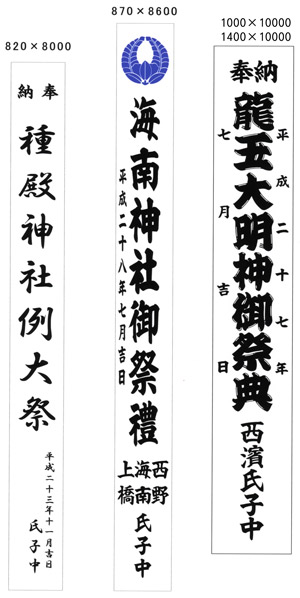 1000×10000
1400×10000
奉納
龍王大明神御祭典
平成二十七年
七月吉日
西濱氏子中
870×8600
海南神社御祭禮
平成二十八年七月吉日
西野
海南
上橋
氏子中
820×8000
奉納
種殿神社例大祭
平成二十三年十一月吉日
氏子中